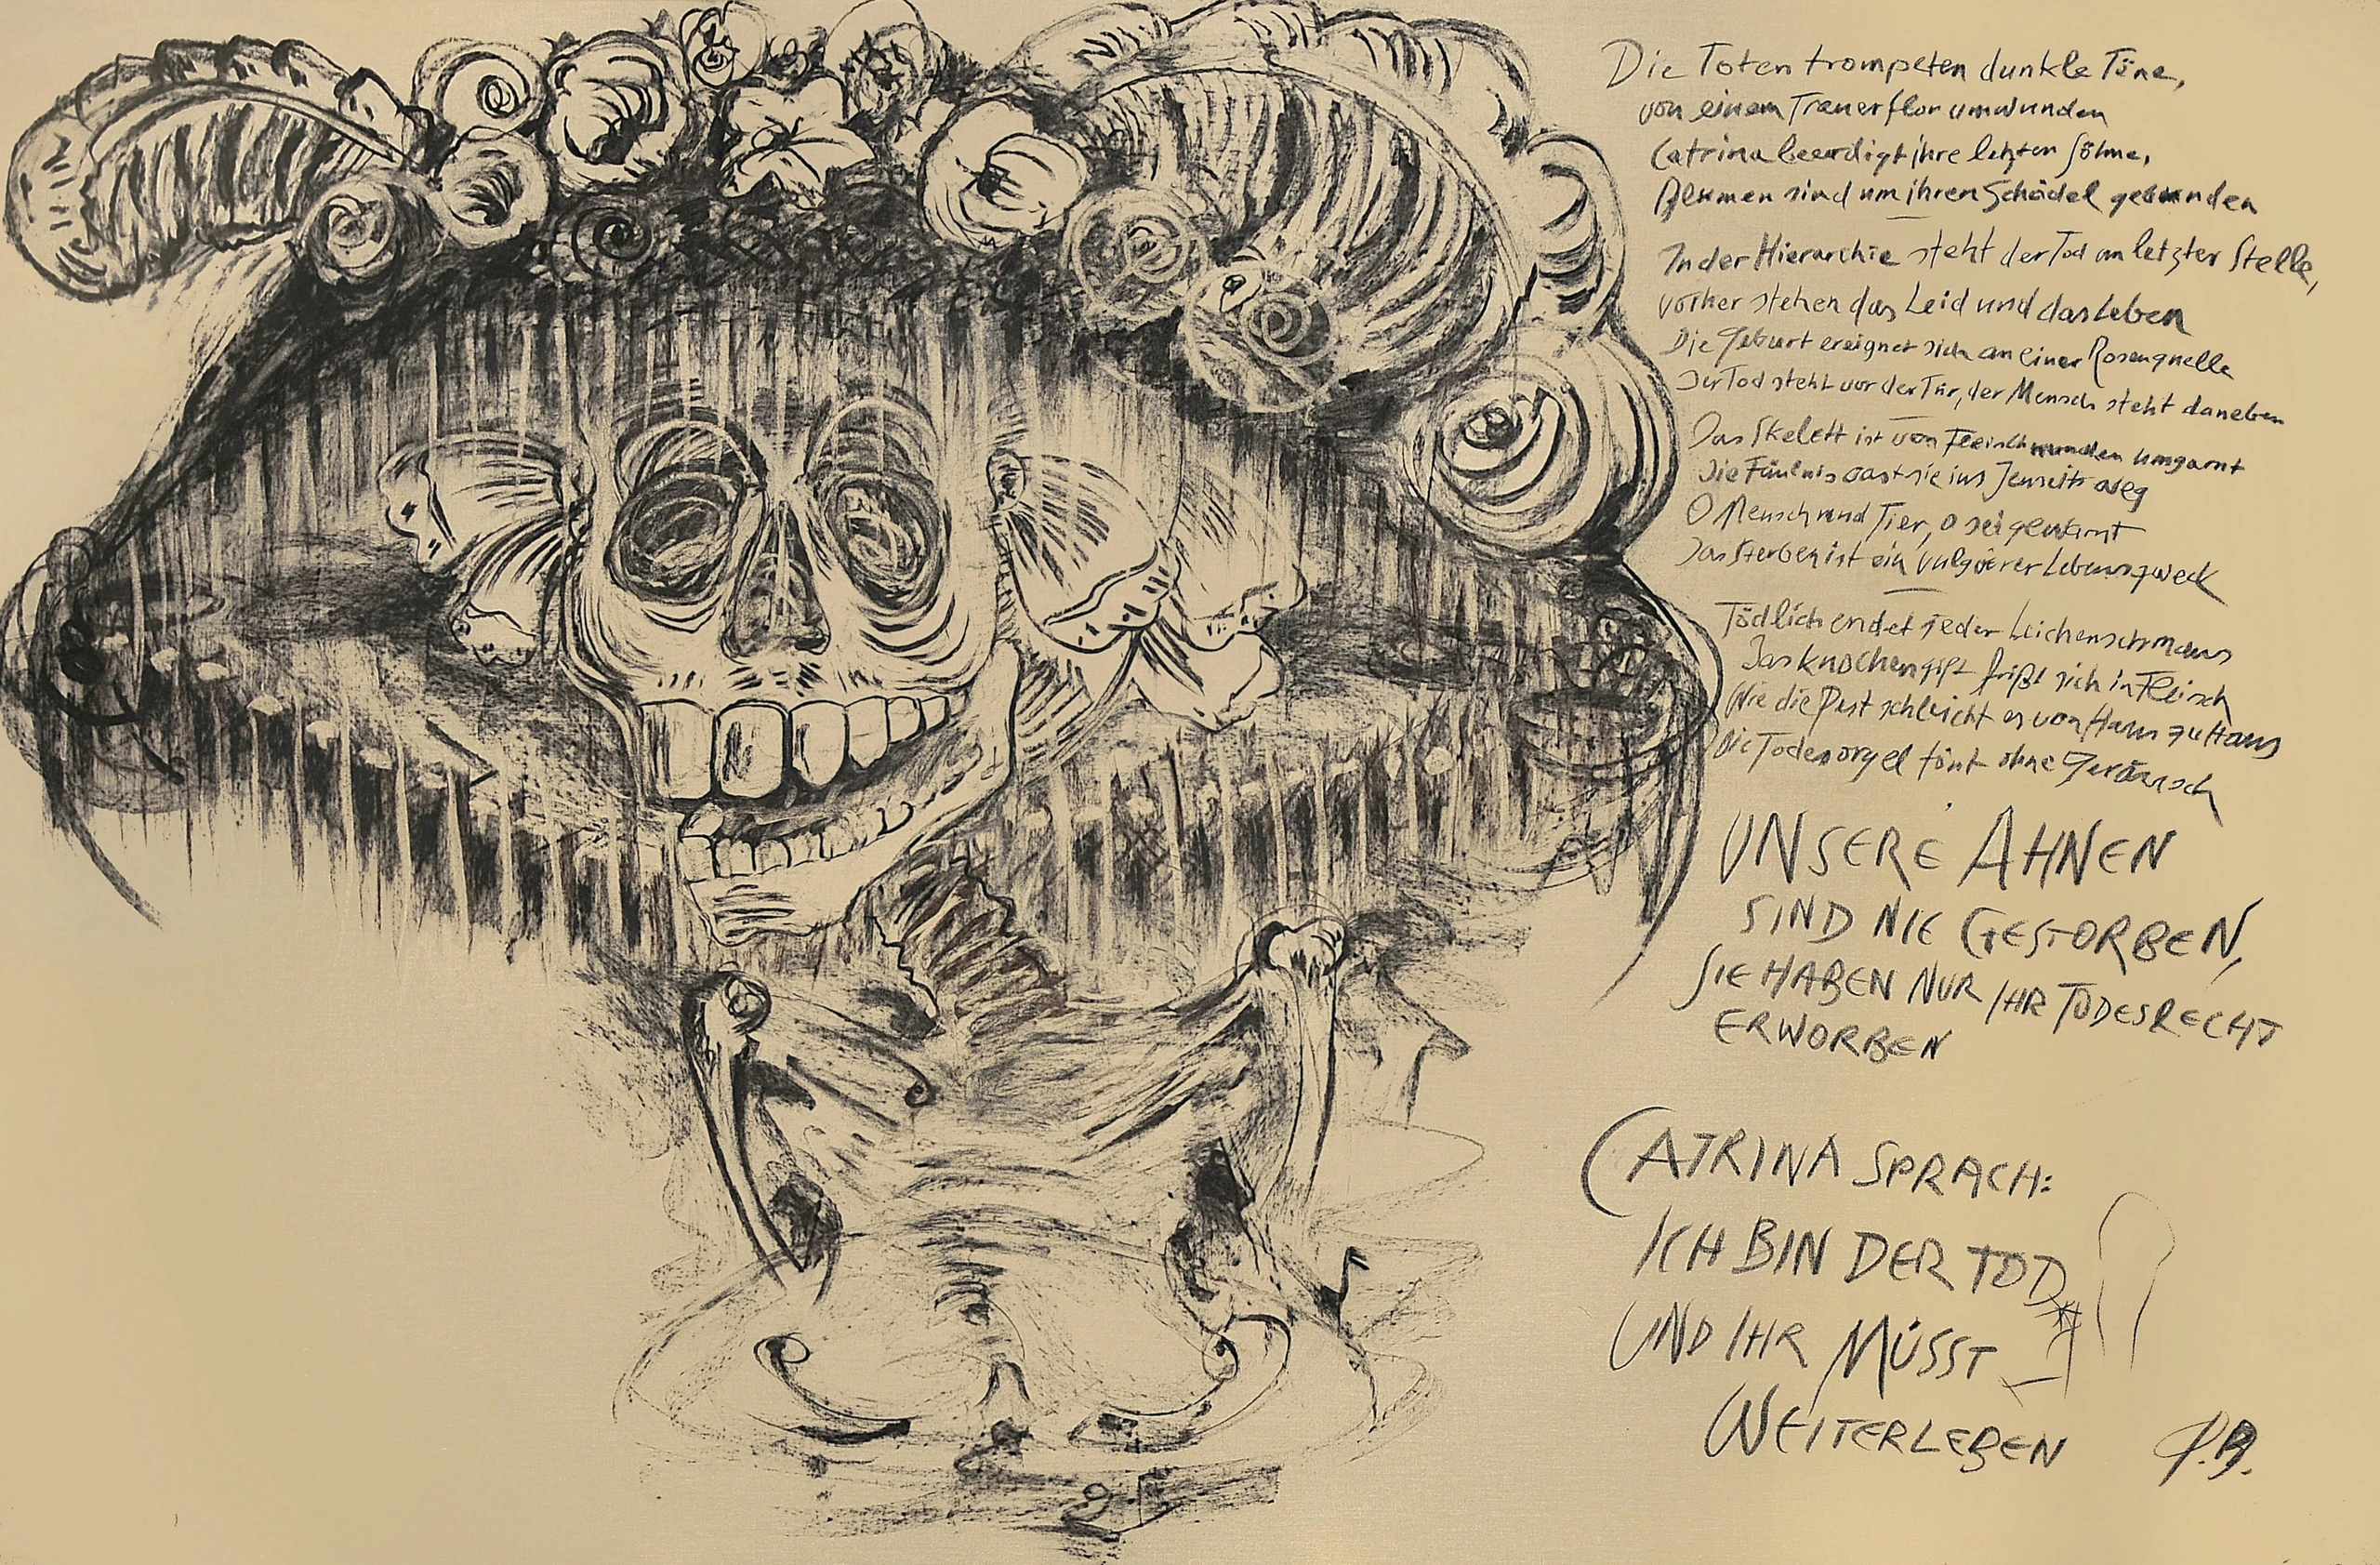 Die Toten trompeten dunkle Töne,
von einem Trauerflor umwunden
Catrina beerdigt ihre letzten Söhne,
Blumen sind um ihren Schädel gebunden
In der Hierarchie steht der Tod an letzter Stelle,
vorher stehen das Leid und das Leben
Die Geburt ereignet sich an einer Rosenquelle
Der Tod steht vor der Tür, der Mensch steht daneben
Das Skelett ist von Fleischwunden umgarnt
Die Fäulnis aast sie ins Jenseits weg
O Mensch und Tier, o sei gewarnt
Das Sterben ist ein vulgärer Lebenszweck
Tödlich endet jeder Leichenschmaus
Das Knochengift frißt sich in Fleisch
Wie die Pest schleicht es von Haus zu Haus
Die Todesorgel tönt ohne Geräusch
UNSERE AHNEN
SIND NIE GESTORBEN,
SIE HABEN NUR IHR TODESRECHT
ERWORBEN
CATRINA SPRACH:
ICH BIN DER TOD
UND IHR MÜSST
WEITERLEBEN